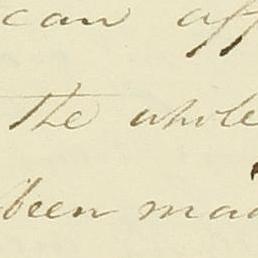 can aff
The whole
been mad